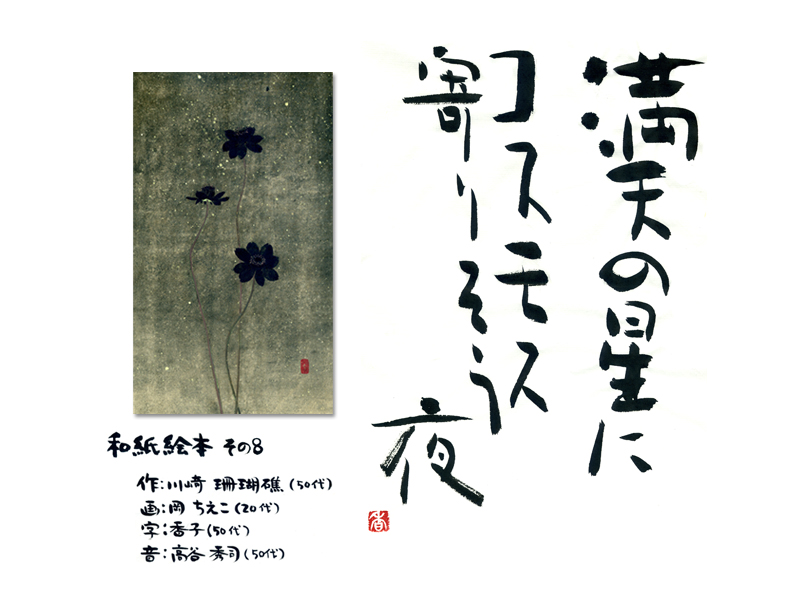 満天の星に
コスモス
寄りそう
夜
香
和紙絵本 その8
作:川崎 珊瑚礁(50代)
画:岡 ちえこ(20代)
字:香子(50代)
音:高谷 秀司(50代)